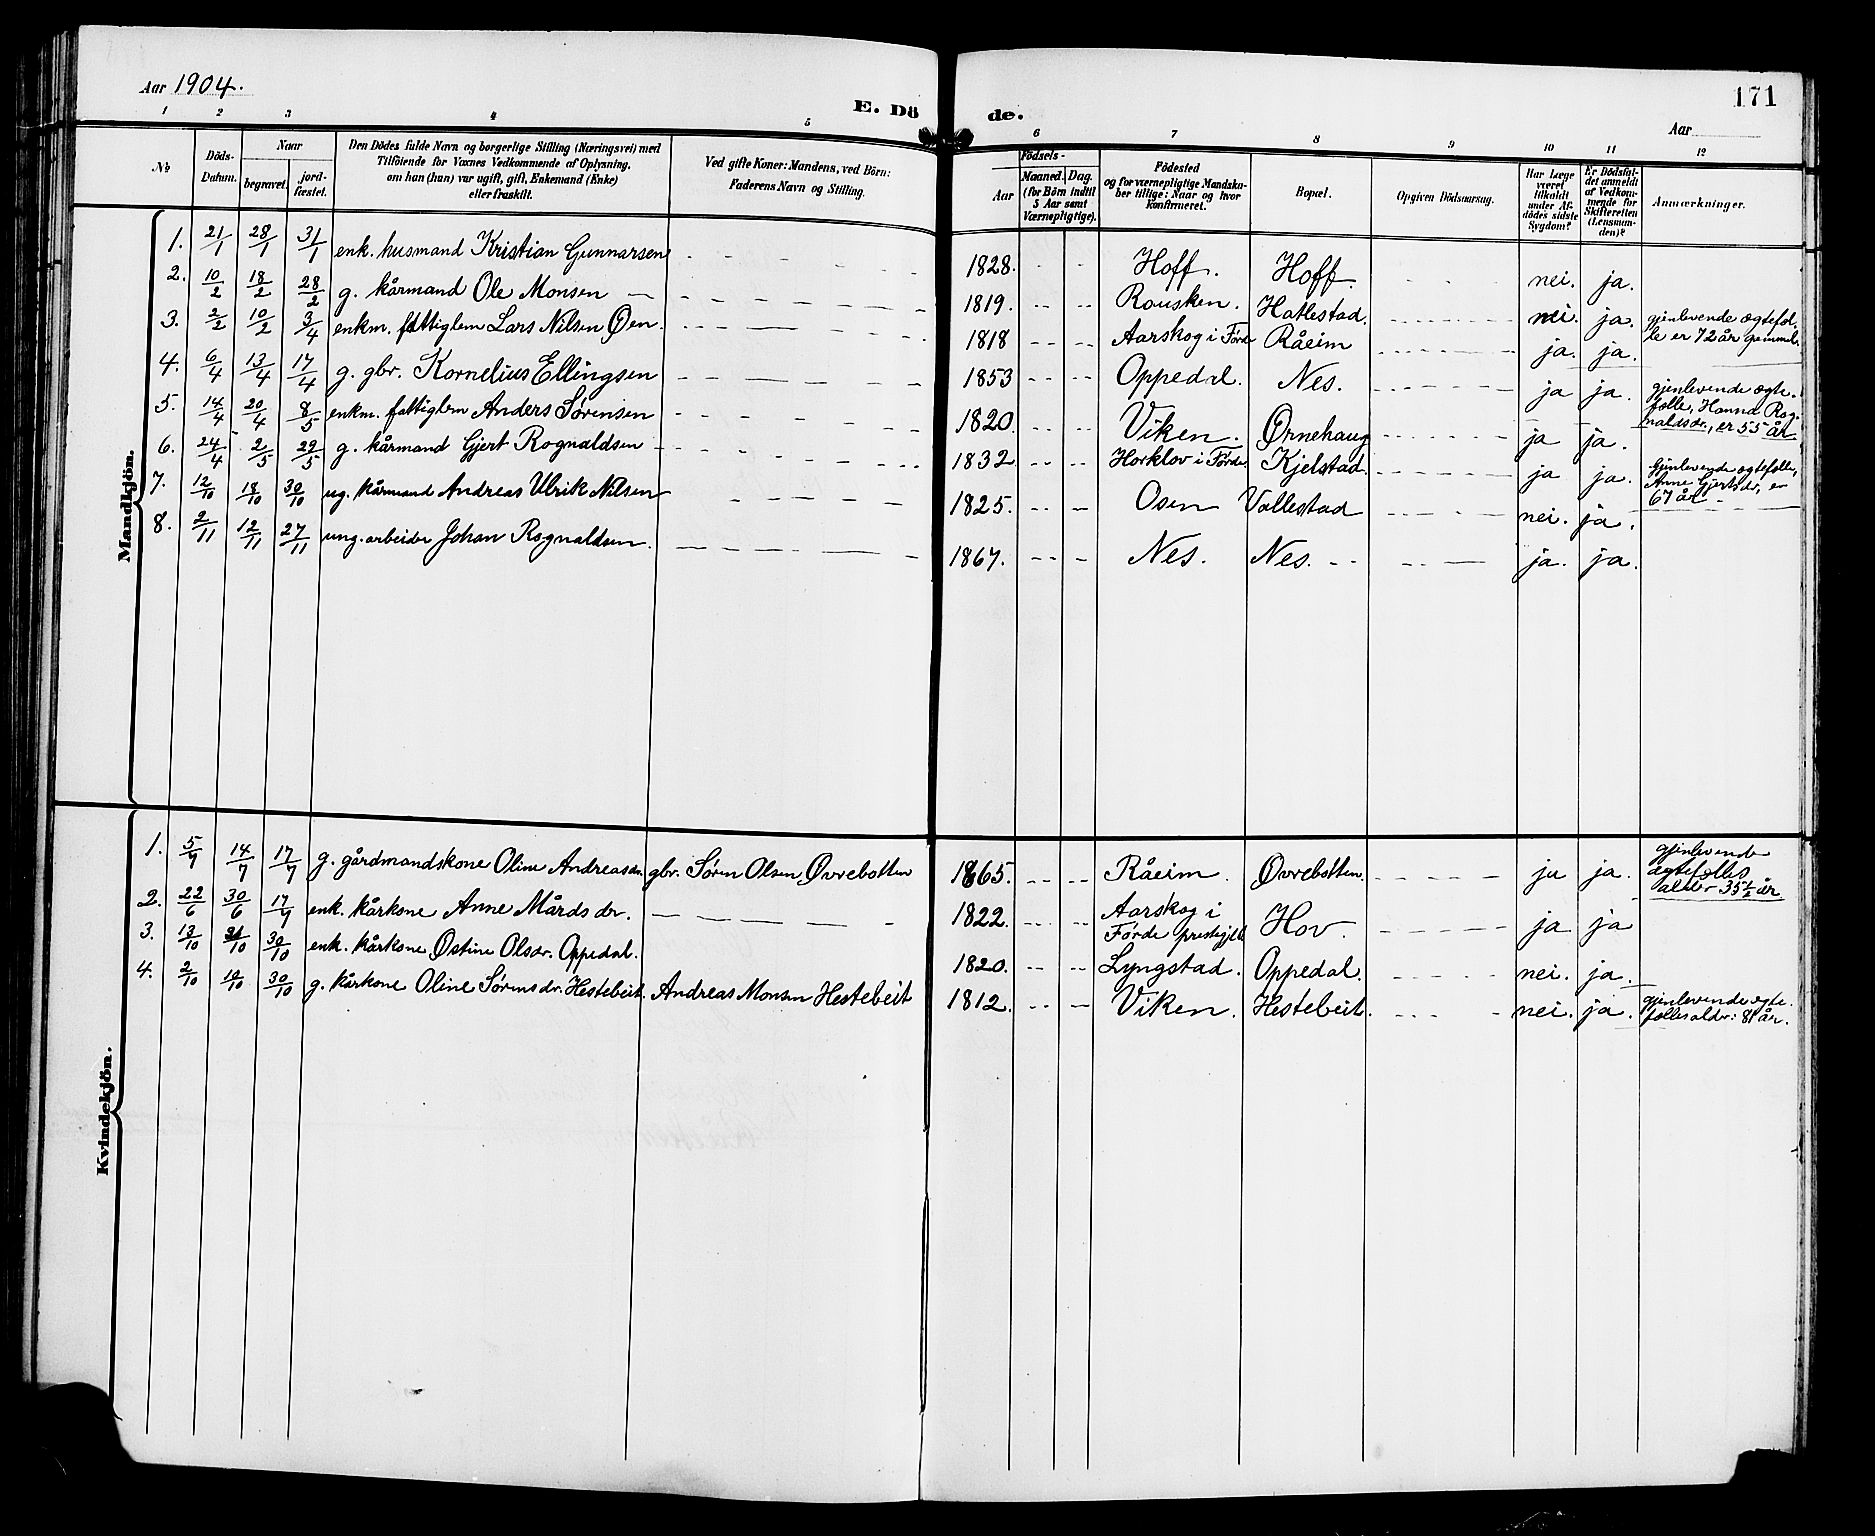 Aar 1904.
E. Dö de.
171
Aar
1 2 3 4 5 6 7 8 9 10 11 12
No
Döds-Datum.
Naar
begravet.
jord-fæstet.
Den Dödes fulde Navn og borgerlige Stilling (Næringsvei) med
Tilföiende for Voxnes Vedkommende af Oplysning,
om han (hun) var ugift, gift, Enkemand (Enke)
eller fraskilt.
Ved gifte Koner: Mandens, ved Börn:
Faderens Navn og Stilling.
Födsels-
Aar
Maaned. Dag.
(for Börn indtil
5 Aar samt
Værnepligtige).
Födested
og for værnepligtige Mandska-
ber tillige: Naar og hvor
konfirmeret.
Bopæl.
Opgiven Dödsaarsag.
Har Læge
været
tilkaldt
under Af-
dödes sidste
Sygdom?
Er Dödsfal-
det anmeldt
af Vedkom-
mende for
Skifteretten
(Lensman-
den)?
Anmærkninger.
Mandkjön.
1. 21/1 28/1 31/1 enk. husmand Kristian Gunnarsen 1828. Hoff. Hoff. nei. ja.
2. 10/2 18/2 28/2 g. kårmand Ole Monsen 1819. Rousken. Hatlestad. nei. ja. gjenlevende ægtefæl-
le er 72 år gammel.
3. 2/2 10/2 3/4 enkm. fattiglem Lars Nilsen Øen. 1818 Aarskog i Førde Råeim ja. ja.
4. 6/4 13/4 17/4 g. gbr. Kornelius Ellingsen 1853 Oppedal. Nes. ja ja. gjenlevende ægte-
fælle, Hanna Rog-
naldsdr., er 55 år
5. 14/4 20/4 8/5 enkm. fattiglem Anders Sørensen 1820. Viken. Ørnehaug ja ja.
6. 24/4 2/5 29/5 g. kårmand Gjert Rognaldsen 1832 Horklov i Førde. Kjelstad. ja ja. Gjenlevende ægtefælle,
Anne Gjertsdr, er
67 år
7. 12/10 18/10 30/10 ug. kårmand Andreas Ulrik Nilsen 1825. Osen Vallestad nei. ja.
8. 2/11 12/11 27/11 ung. arbeider Johan Rognaldsen. 1867. Nes. Nes. ja. ja.
Kvindekjön.
1. 5/7 14/7 17/7 g. gårdmandskone Oline Andreasdr. gbr. Søren Olsen Øvrebotten 1865. Råeim. Øvrebotten. ja ja. gjenlevende
ægtefælles
alder 35½ år
2. 22/6 30/6 17/7 enk. kårkone Anne Mårdsdr. 1822. Aarskog i
Førde prestegjeld Hov. ja ja
3. 13/10 21/10 30/10 enk. kårkone Østine Olsdr. Oppedal. 1820. Lyngstad. Oppedal. nei. ja.
4. 2/10 10/10 30/10 g. kårkone Oline Sørensdr. Hestebeit. Andreas Monsen Hestebeit 1812. Viken. Hestebeit. nei. ja. gjenlevende ægte-
fælles alder: 81 år.